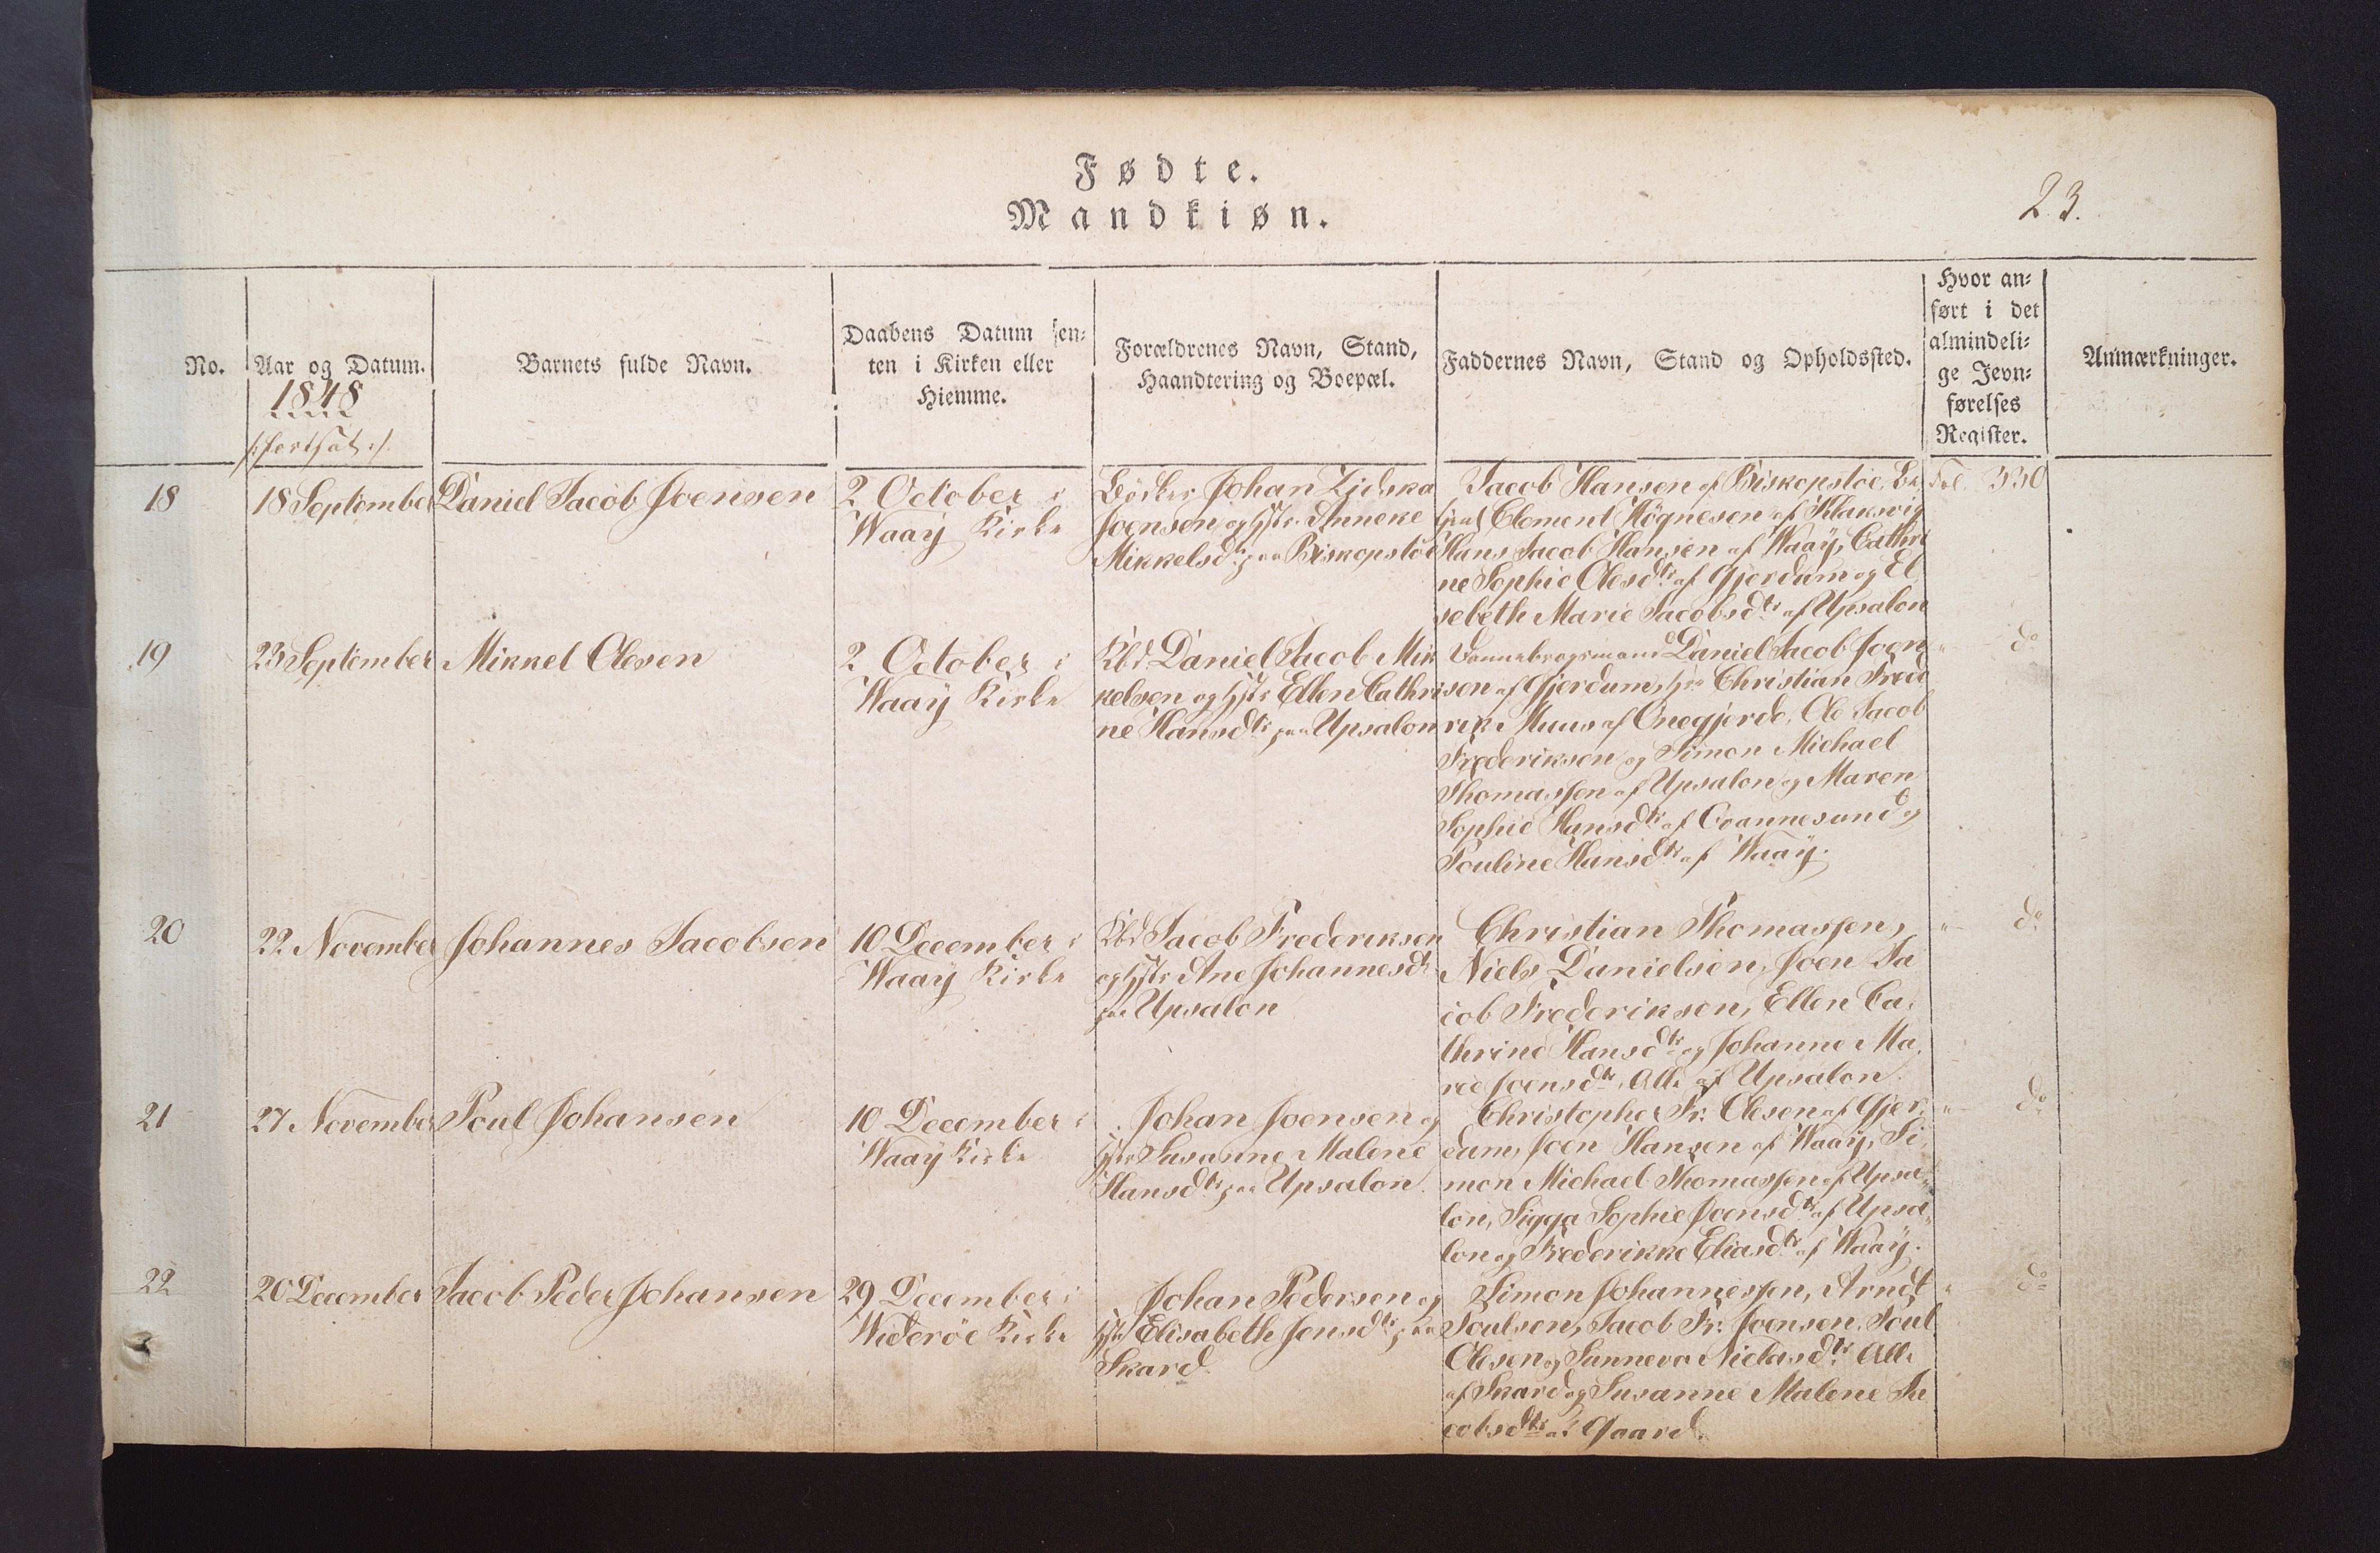 Fødte.
Mandkiøn.
23.
No.
Aar og Datum.
1848
/:fortsat:/
Barnets fulde Navn.
Daabens Datum sen=
ten i Kirken eller
Hiemme.
Forældrenes Navn, Stand,
Haandtering og Boepæl.
Faddernes Navn, Stand og Opholdssted.
Hvor an=
ført i det
almindeli=
ge Jevn=
førelses
Register.
Anmærkninger.
18
18 September
Daniel Jacob Joensen
2 October i
Waay Kirke
Johan Zidska
Joensen og Hstr. Anneke
Mikkelsd. paa Biskopstöe
Jacob Hansen af Biskopstöe,
Clement Högnesen af Klaksvig
Hans Jacob Hansen af Waay, Cathri
ne Sophie Olesdtr af Gjerdum og El
sebeth Marie Jacobsdtr af Upsalon
Fol. 330
19
23 September
Mikkel Olesen
2 October i
Waay Kirke
Kbd. Daniel Jacob Mik
kelsen og Hstr Ellen Cathri
ne Hansdtr paa Upsalon
Dannebrogsmand Daniel Jacob Joen
sen af Gjerdum, Christian Fred
rik Muus af Önegjerde, Ole Jacob
Frederiksen og Simon Michael
Thomassen af Upsalon og Maren
Sophie Hansdtr af Qvannesund og
Pouline Hansdtr af Waay.
" do
20
22 November
Johannes Jacobsen
10 December i
Waay Kirke
Kbd Jacob Frederiksen
og Hstr Ane Johannesdtr
paa Upsalon
Christian Thomassen,
Niels Danielsen, Joen Ja
cob Frederiksen, Ellen Ca,
thrine Hansdtr og Johanne Ma,
rie Joensdtr, Alle af Upsalon.
" do
21
27 November
Poul Johansen
10 December i
Waay Kirke
Johan Joensen og
Hstr Susanne Malene
Hansdtr paa Upsalon.
Christopher Fr. Olesen af Gjer,
dum, Joen Hansen af Waay, Si,
mon Michael Thomassen af Upsa
lon, Sigga Sophie Joensdtr af Upsa
lon og Frederikke Eliasdtr af Waay.
" do
22
20 December
Jacob Peder Johansen
29 December i
Wideröe Kirke
Johan Pedersen og
Hstr Elisabeth Jensdtr paa
Skard.
Simon Johannessen, Arndt
Poulsen, Jacob Fr. Joensen, Poul
Olesen og Sunneva Niclasdtr Alle
af Skard og Susanne Malene Ja
cobsdtr af Gaard.
" do